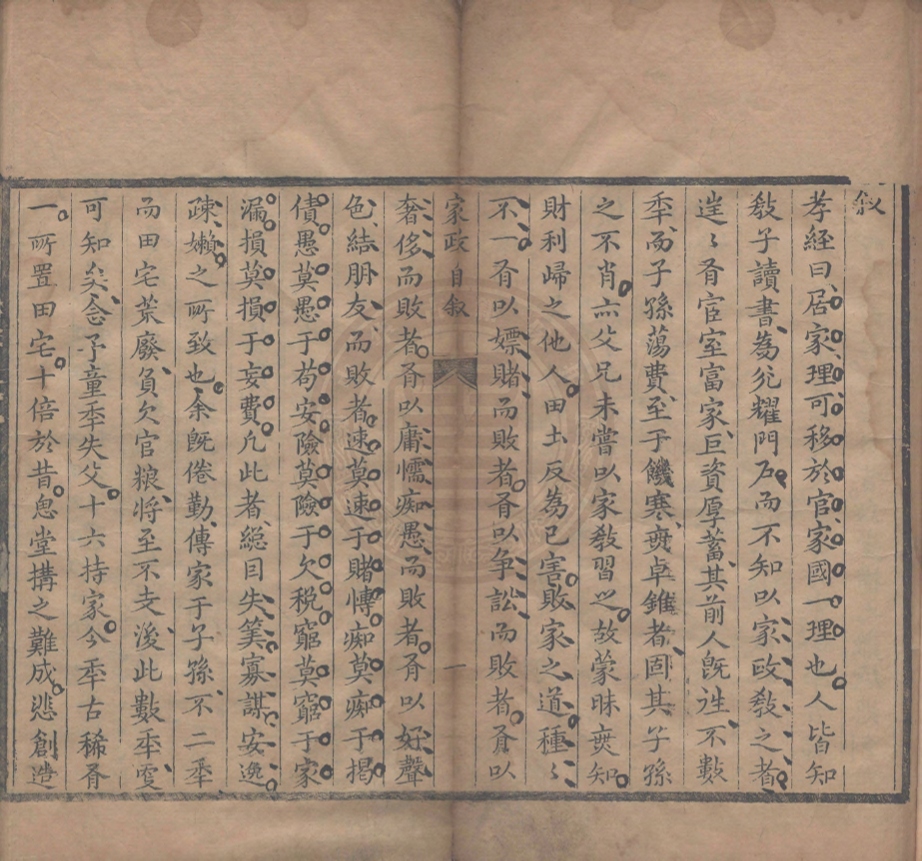 叙
孝經曰居家理可移於官家國一理也人皆知
敎子讀書為光耀門戶而不知以家政敎之者
逞〻有宦室富家巨資厚蓄其前人旣逝不數
年而子孫蕩費至于饑寒無卓錐者固其子孫
之不肖亦父兄未嘗以家敎習之故蒙昧無知
財利歸之他人田土反為已害敗家之道種〻
不一有以嫖賭而敗者有以爭訟而敗者有以
家政自叙
一
奢侈而敗者有以庸懦痴愚而敗者有以好聲
色結朋友而敗者速莫速于賭慱痴莫痴于揭
債愚莫愚于苟安險莫險于欠稅窮莫窮于家
漏損莫損于妄費凢此者緫目失筭寡謀安逸
疎嬾之所致也余旣倦勤傳家于子孫不二年
而田宅荒廢負欠官粮將至不支後此數年更
可知矣念予童年失父十六持家今年古稀有
一所置田宅十倍於昔思堂搆之難成悲創造